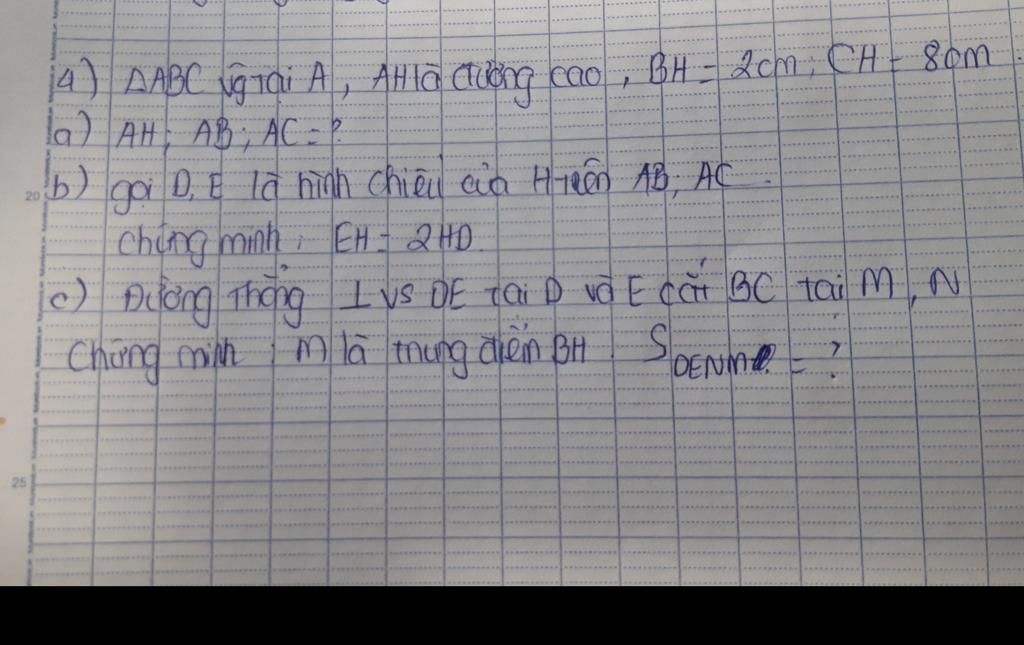 4) ΔABC vg tại A, AH là đường cao, BH = 2cm; CH = 8cm.
a) AH; AB; AC = ?
20 b) gọi D, E là hình chiếu của H trên AB; AC.
chứng minh: EH = 2HD
c) Đường thẳng ⊥ vs DE tại D và E cắt BC tại M, N
Chứng minh: M là trung điểm BH S DENM = ?
25